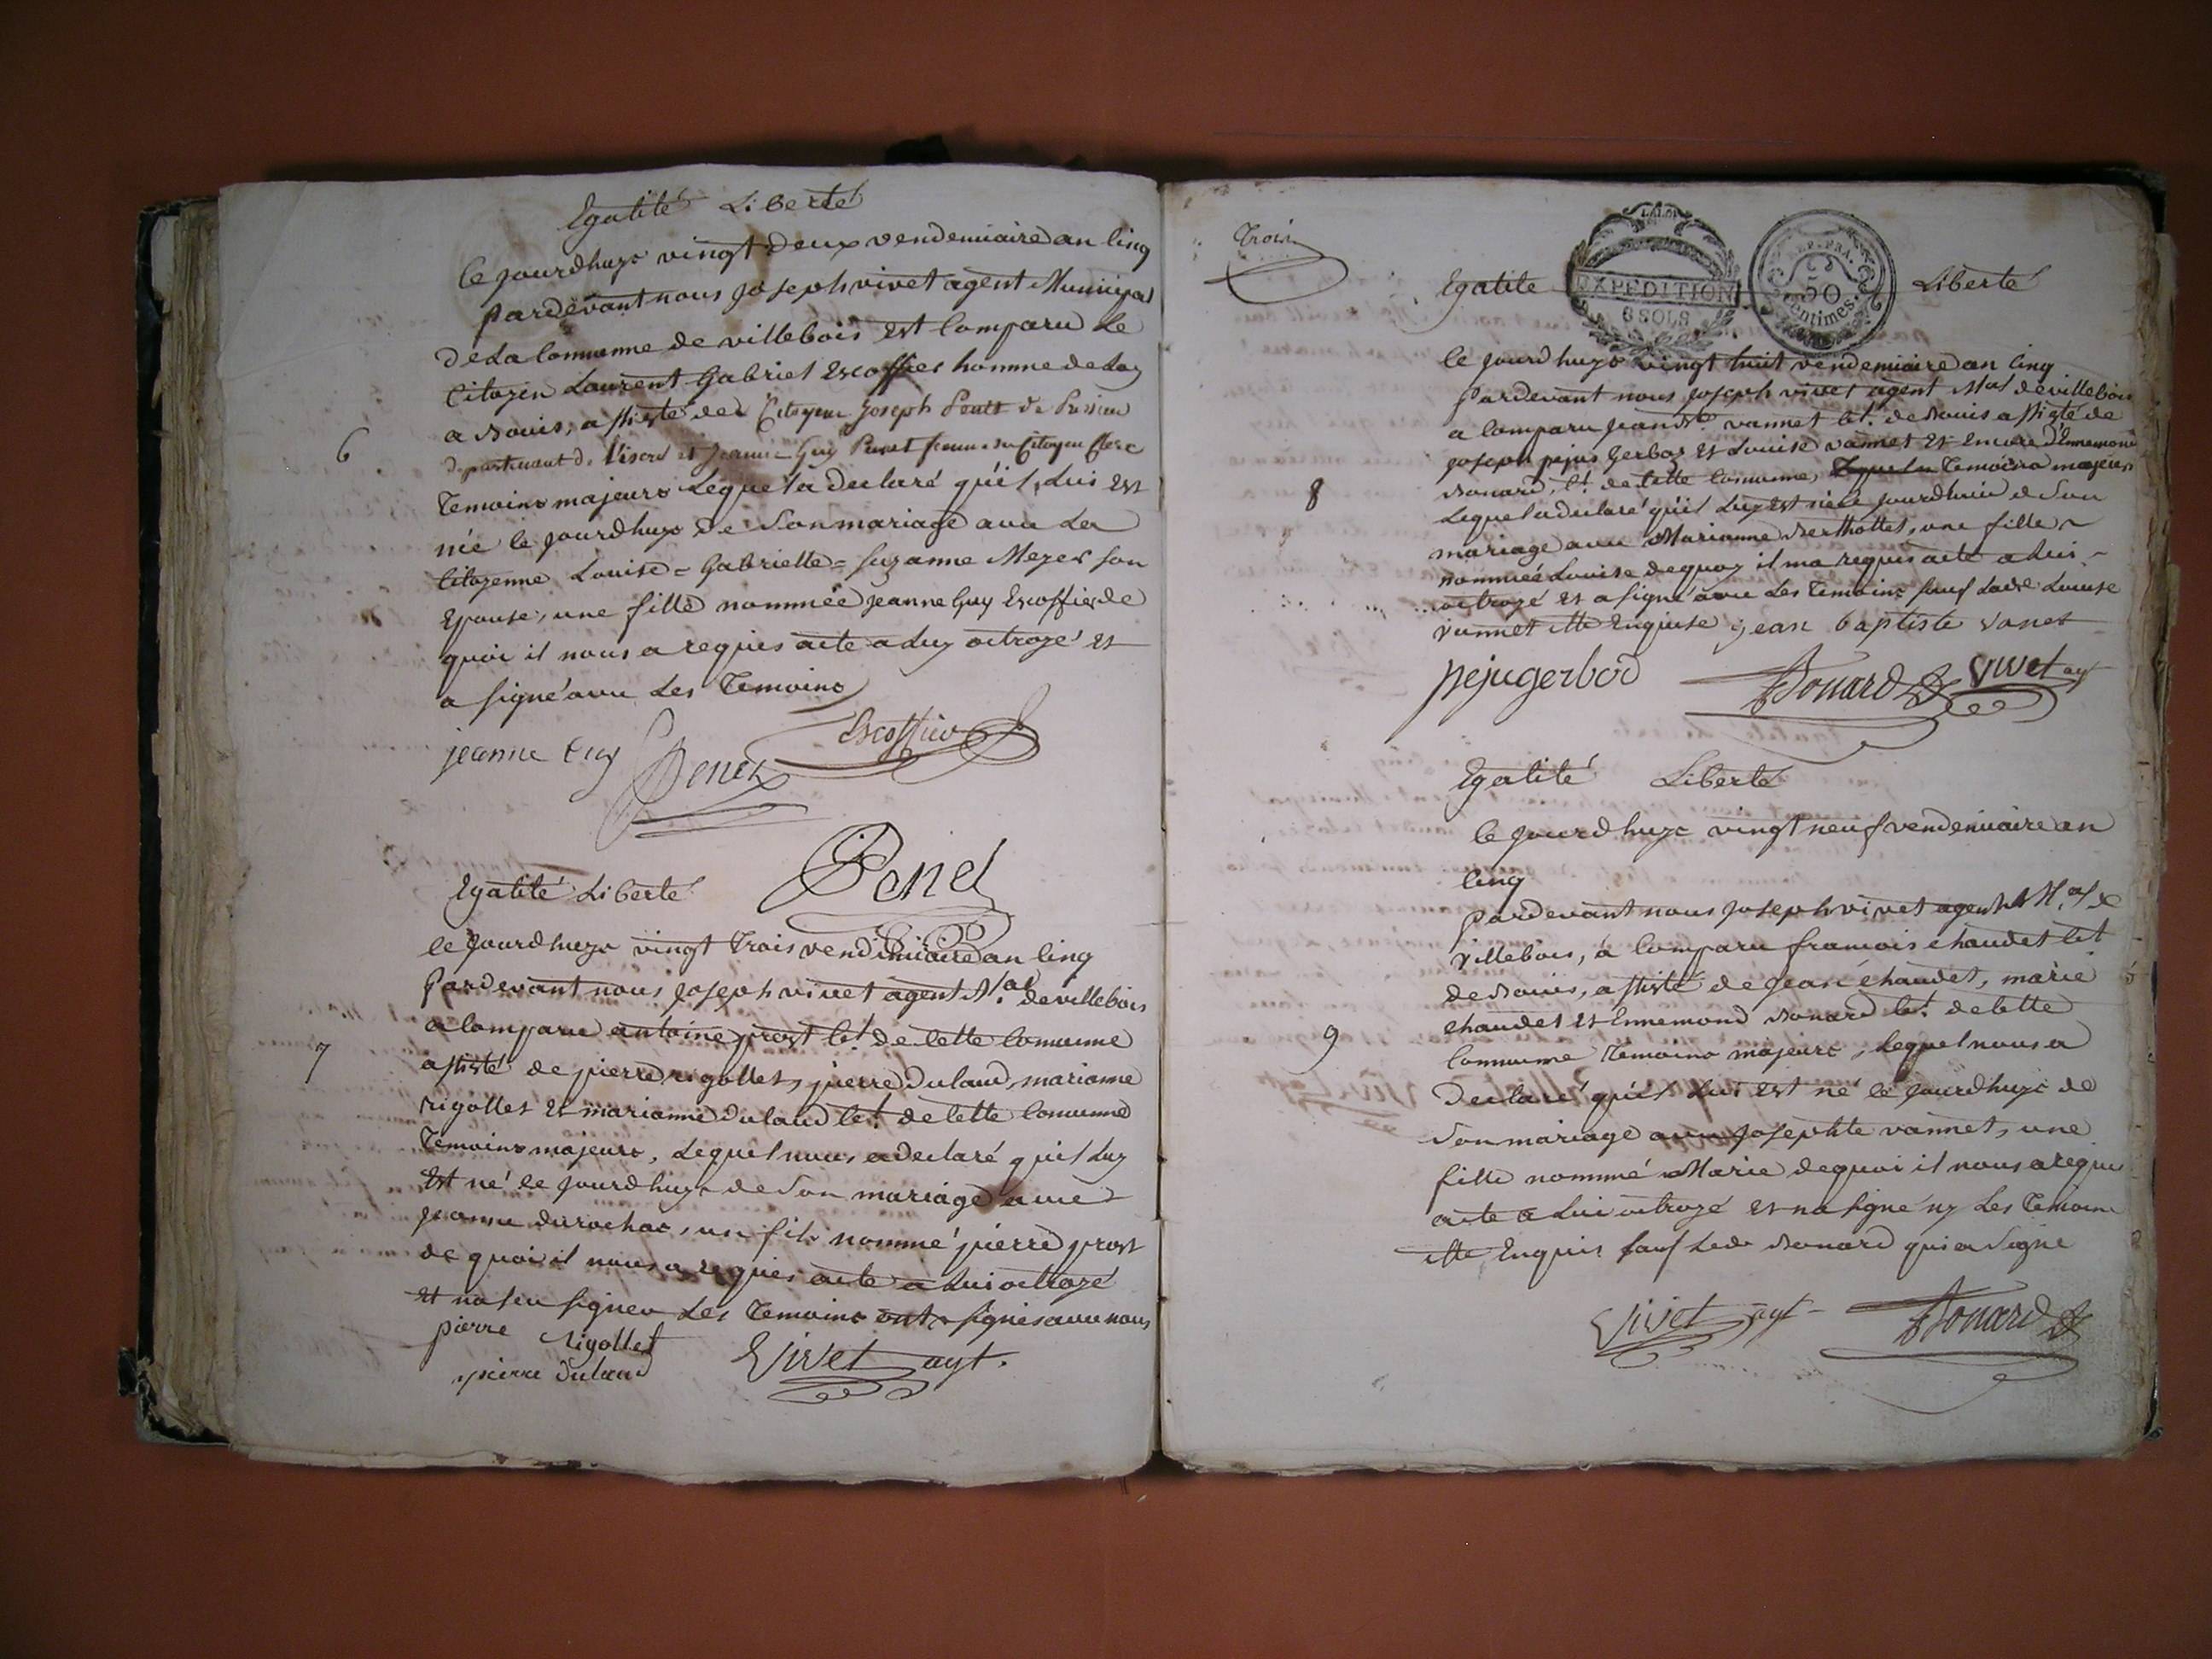 Egalité Liberté
le jourdhuys vingt deux vendemiaire an cinq
pardevant nous joseph vivet agent Municipal
de La Commune de villebois est Comparu Le
Citoyen Laurent Gabriel Escoffier homme de Loy
a Bouis, assisté de Citoyen Joseph
6
departement de l'isere et Jeanne Guy femme du Citoyen
Temoins majeurs Lequel a declaré qu'il Lui est
née le jourdhuys de Son mariage avec La
Citoyenne Louise = Gabrielle = Suzanne Meyer son
Epouse, une fille nommée jeanne Guy Escoffier de
quoi il nous a requis acte a Luy octroyé et
a signé avec Les Temoins
jeanne Guy Penet Escoffier
Penet
Egalité Liberté
le jourdhuys vingt Trois vendemiaire an cinq
Pardevant nous joseph vivet agent M.al de villebois
a Comparu antoine prost C.t de Cette Commune
7
assisté de pierre rigollet, pierre dulaud, marianne
rigollet et marianne dulaud C.t de Cette Commune
Temoins majeurs, Lequel nous a declaré quil Luy
Est né le jourdhuys de Son mariage avec
jeanne durochat, un fils nommé pierre prost
de quoi il nous a requis acte a Lui octroyé
et na seu signer Les Temoins ont signés avec nous
pierre rigollet
pierre dulaud Vivet agt.
Trois
LA LOI
EXPEDITION
6 SOLS
REP. FRA.
50
Centimes.
Egalité Liberté
le jourdhuys vingt huit vendemiaire an cinq
Pardevant nous joseph vivet agent M.al de villebois
a Comparu jean B.te vannet C.t de Bouis assisté de
joseph pejus Gerbod et Louise vannet et encore d'Ennemond
8
Bonard, C.t de Cette Commune, Temoins majeurs
Lequel a declaré qu'il Luy est née le jourdhuis de Son
mariage avec Marianne Berthollet, une fille
nommée Louise dequoy il ma requis acte a Lui
octroyé et a signé avec Les Temoins sauf Lade Louise
vannet Enquise jean baptiste vanet
pejugerbod Bonard Vivet agt
Egalité Liberté
le jourdhuys vingt neuf vendemiaire an
cinq
pardevant nous joseph vivet agent M.al de
villebois, a Comparu francois chaudet C.t
de Bouis, assisté de Jean chaudet, marie
chaudet et Ennemond Bonard C.t de Cette
9
Commune Temoins majeurs, Lequel nous a
declaré qu'il Lui est né le jourdhuys de
Son mariage avec josephte vannet, une
fille nommé Marie dequoi il nous a requis
acte a Lui octroyé et na signé ny Les Temoins
Enquis sauf Led. Bonard qui a Signé
Vivet agt Bonard